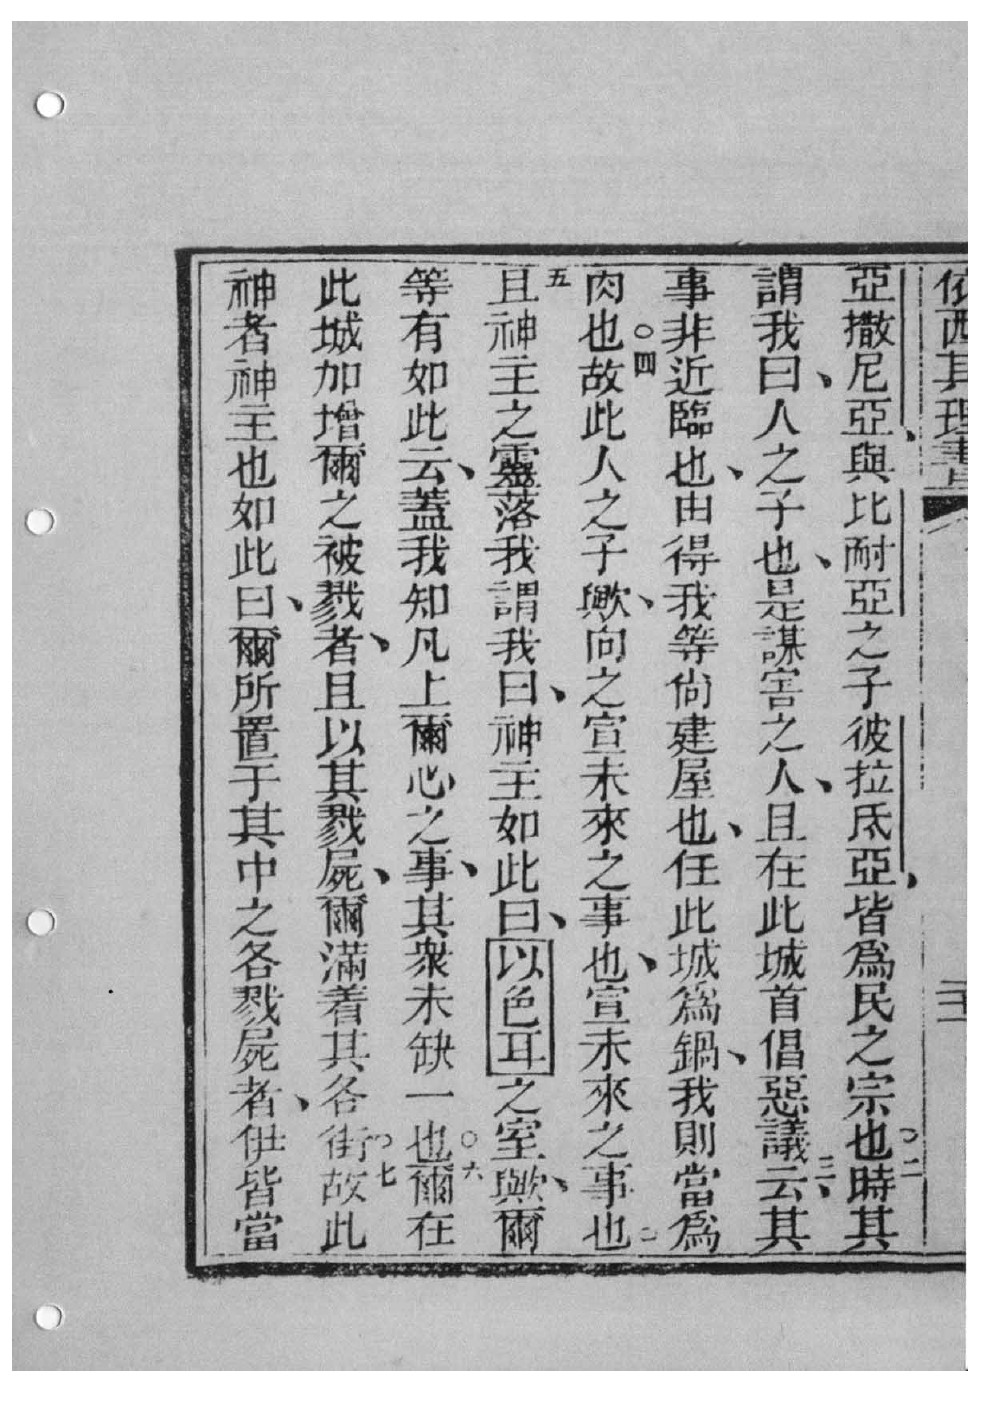 依西其理書
亞撒尼亞、與比耐亞之子彼拉氐亞、皆為民之宗也○二時其
謂我曰、人之子也、是謀害之人、且在此城首倡惡議三云、其
事非近臨也、由得我等尙建屋也、任此城為鍋、我則當為
肉也○四故此人之子歟、向之宣未來之事也、宣未來之事也○
五且神主之靈落我謂我曰、神主如此曰、以色耳之室歟、爾
等有如此云、蓋我知凡上爾心之事、其衆未缺一也○六爾在
此城加增爾之被戮者、且以其戮屍、爾滿着其各街○七故此
神者神主也如此曰、爾所置于其中之各戮屍者、伊皆當